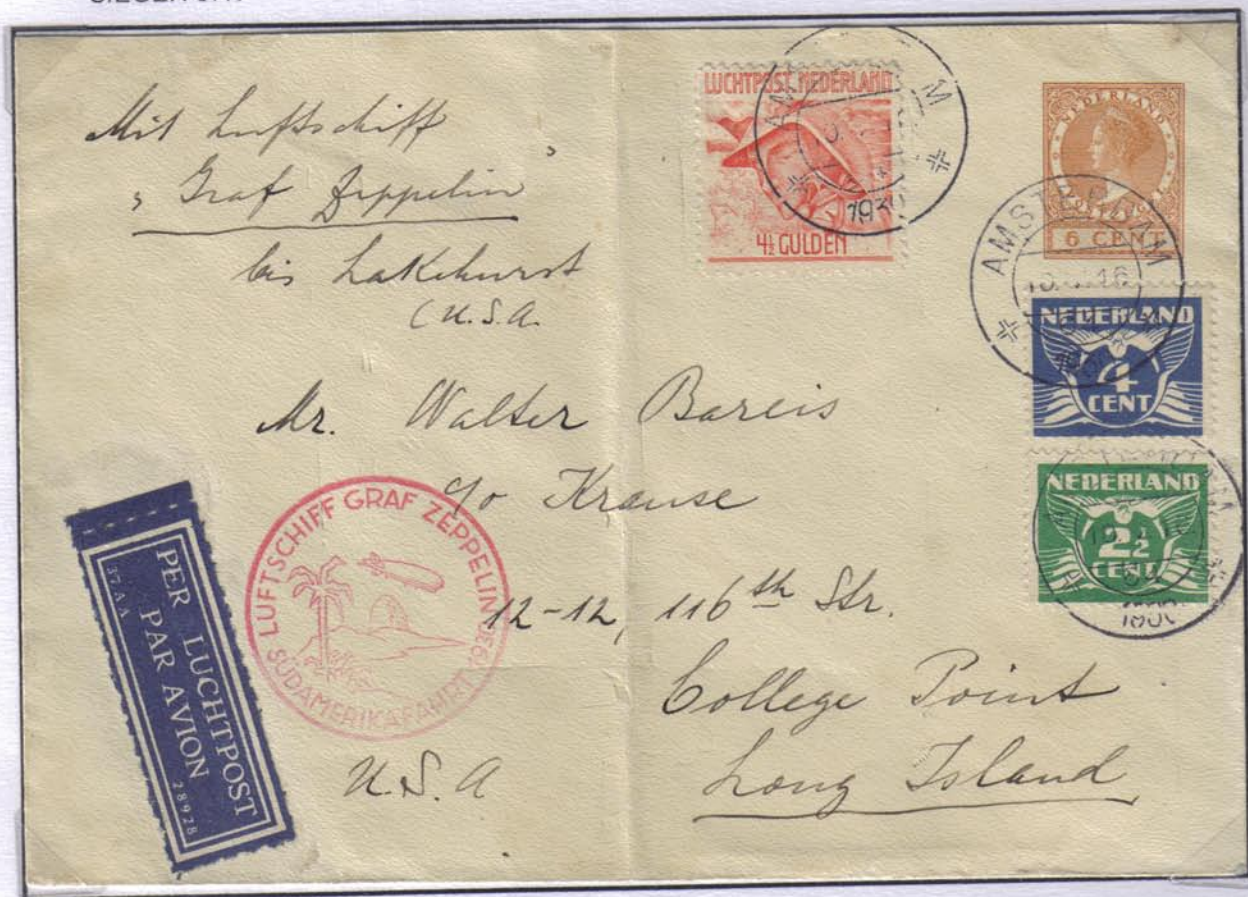 Mit Luftschiff
„Graf Zeppelin"
bis Lakehurst
(U.S.A.
LUCHTPOST NEDERLAND
4½ GULDEN
1930
NEDERLAND
6 CENT
AMSTERDAM
1930
NEDERLAND
4
CENT
NEDERLAND
2½
CENT
1930
Mr. Walter Bareis
c/o Krause
12-12, 116th Str.
College Point
Long Island
U.S.A
LUFTSCHIFF GRAF ZEPPELIN
SÜDAMERIKAFAHRT 1930
PER LUCHTPOST
PAR AVION
37AA
28928